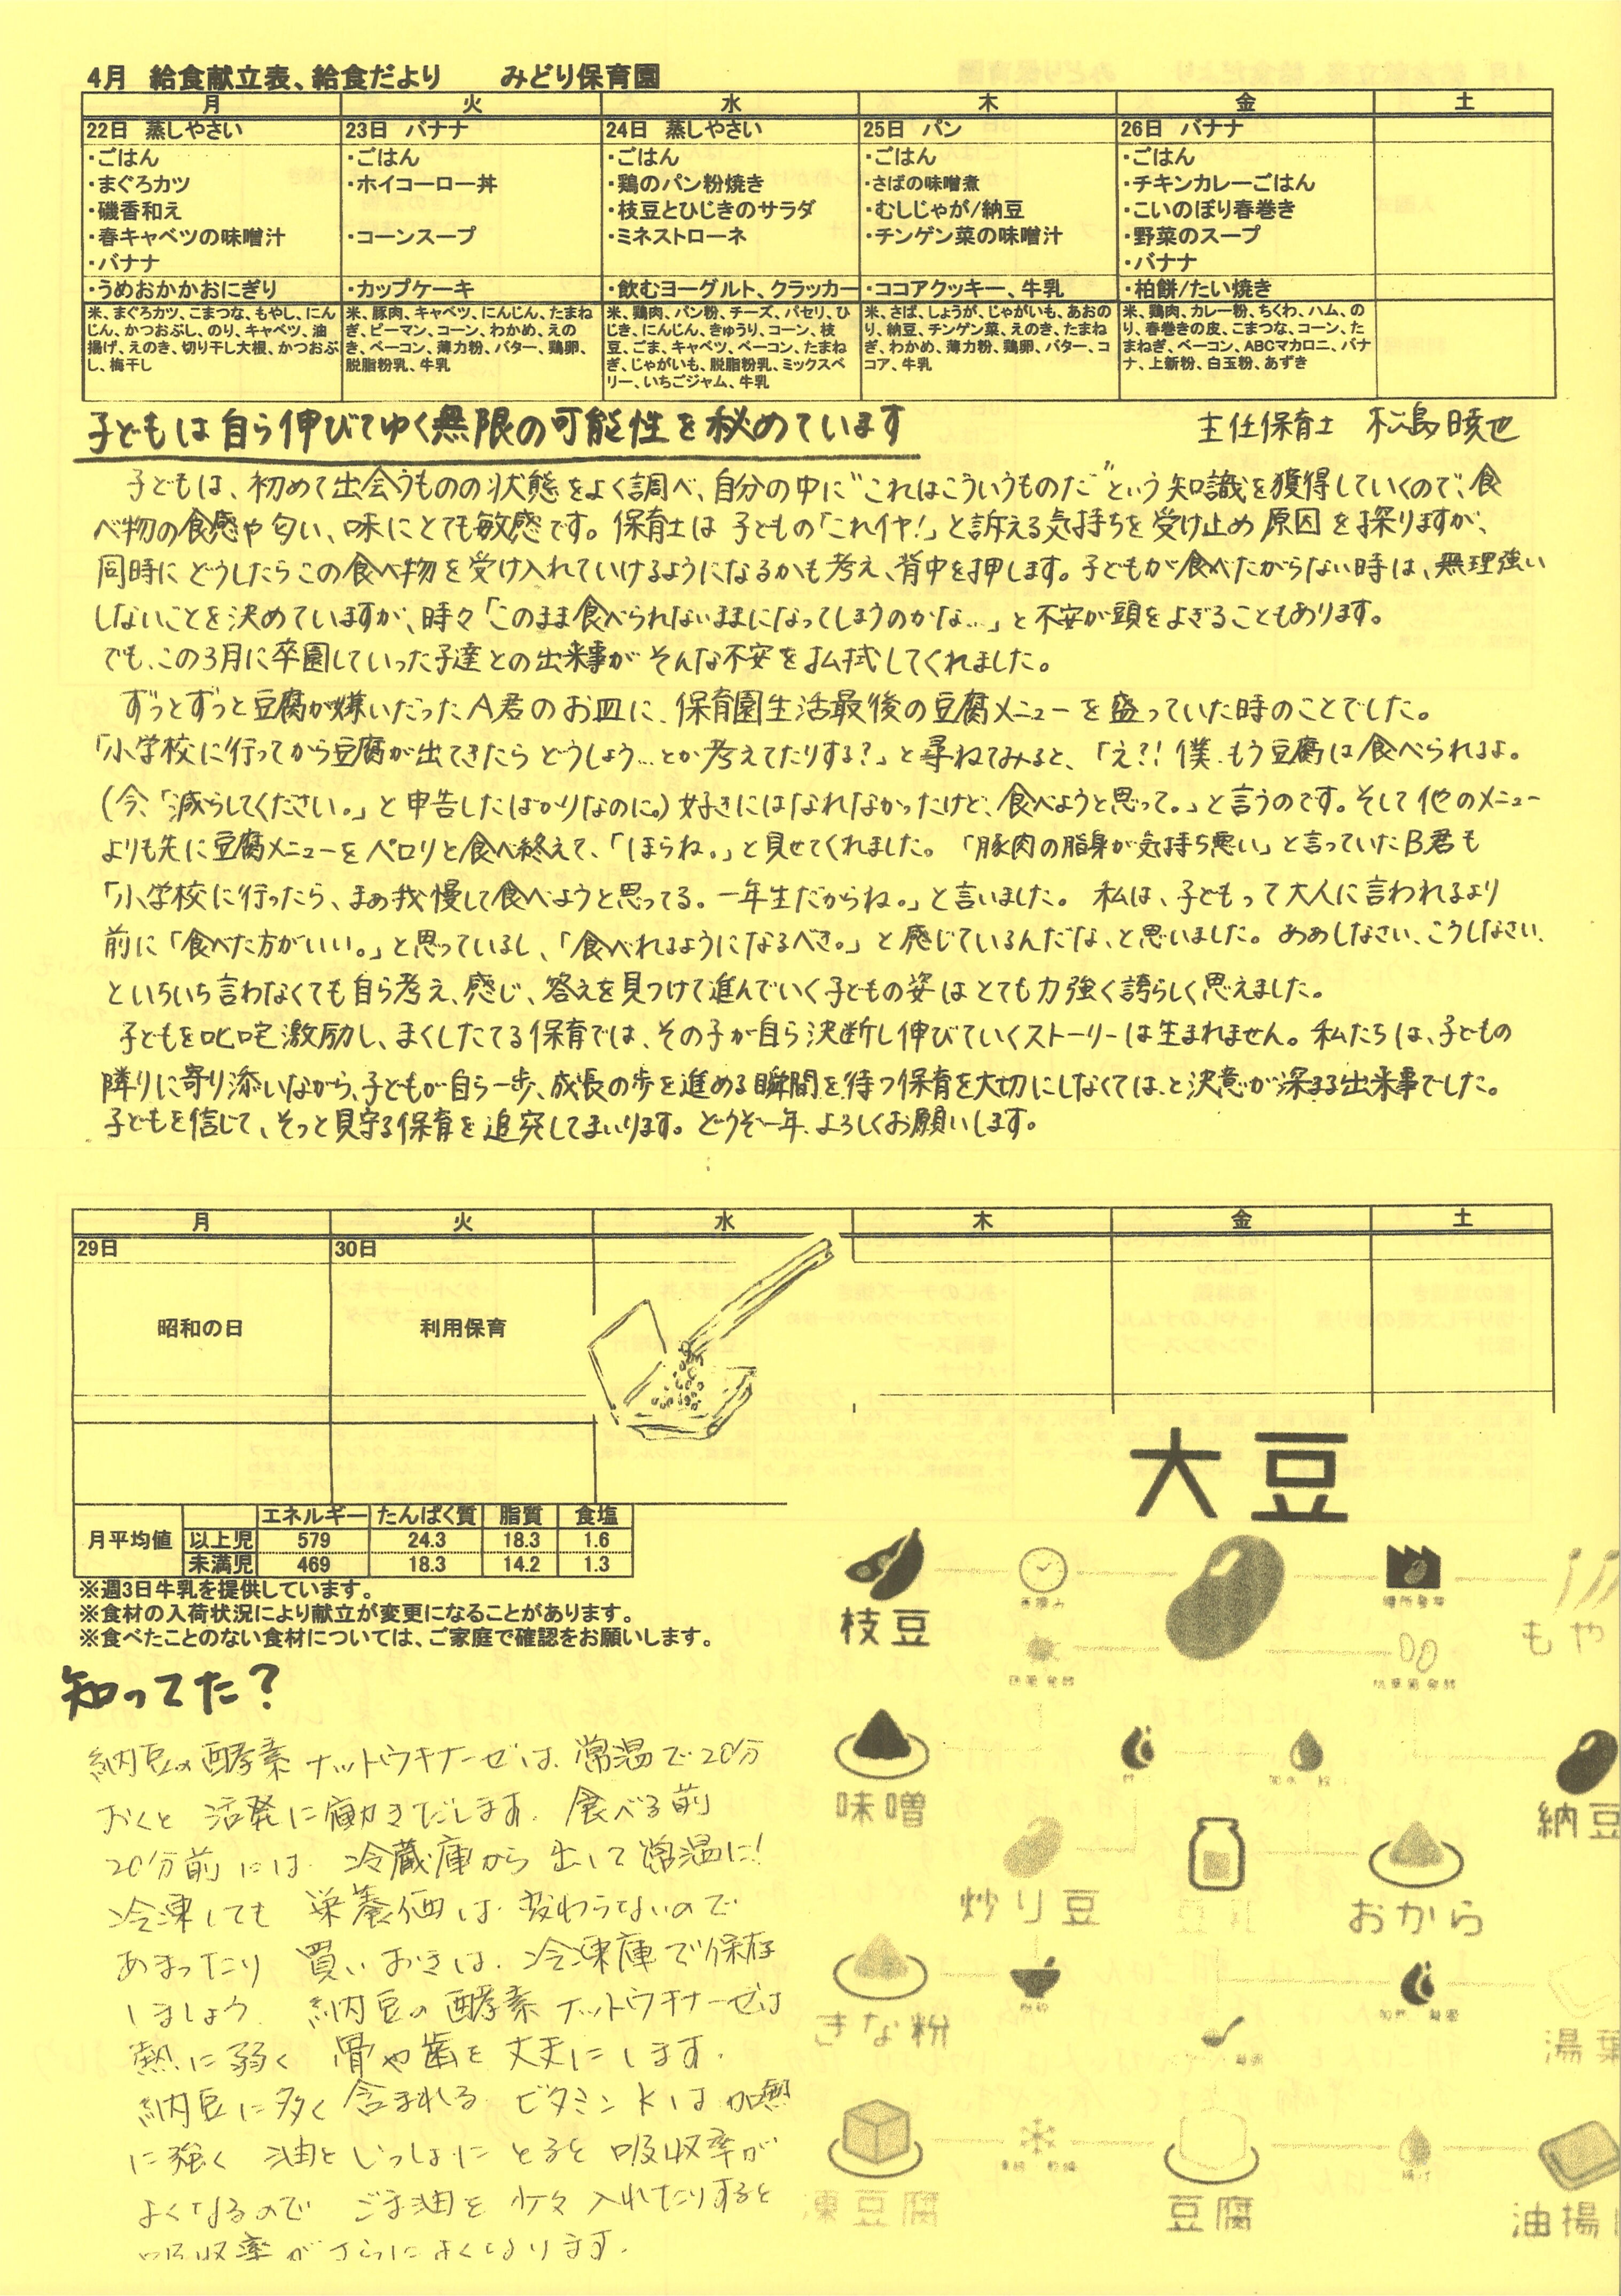 4月 給食献立表、給食だより みどり保育園
月 火 水 木 金 土
22日 蒸しやさい
・ごはん
・まぐろカツ
・磯香和え
・春キャベツの味噌汁
・バナナ
・うめおかかおにぎり
米、まぐろカツ、こまつな、もやし、にん
じん、かつおぶし、のり、キャベツ、油
揚げ、えのき、切り干し大根、かつおぶ
し、梅干し
23日 バナナ
・ごはん
・ホイコーロー丼
・コーンスープ
・カップケーキ
米、豚肉、キャベツ、にんじん、たまね
ぎ、ピーマン、コーン、わかめ、えの
き、ベーコン、薄力粉、バター、鶏卵、
脱脂粉乳、牛乳
24日 蒸しやさい
・ごはん
・鶏のパン粉焼き
・枝豆とひじきのサラダ
・ミネストローネ
・飲むヨーグルト、クラッカー
米、鶏肉、パン粉、チーズ、パセリ、ひ
じき、にんじん、きゅうり、コーン、枝
豆、ごま、キャベツ、ベーコン、たまね
ぎ、じゃがいも、脱脂粉乳、ミックスベ
リー、いちごジャム、牛乳
25日 パン
・ごはん
・さばの味噌煮
・むしじゃが/納豆
・チンゲン菜の味噌汁
・ココアクッキー、牛乳
米、さば、しょうが、じゃがいも、あおの
り、納豆、チンゲン菜、えのき、たまね
ぎ、わかめ、薄力粉、鶏卵、バター、コ
コア、牛乳
26日 バナナ
・ごはん
・チキンカレーごはん
・こいのぼり春巻き
・野菜のスープ
・バナナ
・柏餅/たい焼き
米、鶏肉、カレー粉、ちくわ、ハム、の
り、春巻きの皮、こまつな、コーン、た
まねぎ、ベーコン、ABCマカロニ、バナ
ナ、上新粉、白玉粉、あずき
子どもは自ら伸びてゆく無限の可能性を秘めています
主任保育士 松島暁也
子どもは、初めて出会うものの状態をよく調べ、自分の中に"これはこういうものだ"という知識を獲得していくので、食
べ物の食感や匂い、味にとても敏感です。保育士は子どもの「これイヤ!」と訴える気持ちを受け止め原因を探りますが、
同時にどうしたらこの食べ物を受け入れていけるようになるかも考え、背中を押します。子どもが食べたがらない時は、無理強い
しないことを決めていますが、時々「このまま食べられないままになってしまうのかな…」と不安が頭をよぎることもあります。
でも、この3月に卒園していった子達との出来事がそんな不安を払拭してくれました。
ずっとずっと豆腐が嫌いだったA君のお皿に、保育園生活最後の豆腐メニューを盛っていた時のことでした。
「小学校に行ってから豆腐が出てきたらどうしよう…とか考えてたりする?」と尋ねてみると、「え?!僕、もう豆腐は食べられるよ。
(今、「減らしてください。」と申告したばかりなのに。)好きにはなれなかったけど、食べようと思って。」と言うのです。そして他のメニュー
よりも先に豆腐メニューをペロリと食べ終えて、「ほらね。」と見せてくれました。「豚肉の脂身が気持ち悪い」と言っていたB君も
「小学校に行ったら、まあ我慢して食べようと思ってる。一年生だからね。」と言いました。私は、子どもって大人に言われるより
前に「食べた方がいい。」と思っているし、「食べれるようになるべき。」と感じているんだな、と思いました。ああしなさい、こうしなさい、
といちいち言わなくても自ら考え、感じ、答えを見つけて進んでいく子どもの姿はとても力強く誇らしく思えました。
子どもを叱咤激励し、まくしたてる保育では、その子が自ら決断し伸びていくストーリーは生まれません。私たちは、子どもの
隣りに寄り添いながら、子どもが自ら一歩、成長の歩を進める瞬間を待つ保育を大切にしなくては、と決意が深まる出来事でした。
子どもを信じて、そっと見守る保育を追究してまいります。どうぞ一年、よろしくお願いします。
月 火 水 木 金 土
29日 30日
昭和の日 利用保育
エネルギー たんぱく質 脂質 食塩
月平均値 以上児 579 24.3 18.3 1.6
未満児 469 18.3 14.2 1.3
※週3日牛乳を提供しています。
※食材の入荷状況により献立が変更になることがあります。
※食べたことのない食材については、ご家庭で確認をお願いします。
知ってた?
納豆の酵素ナットウキナーゼは、常温で20分
おくと 活発に働きだします。食べる前
20分前には、冷蔵庫から出して常温に!
冷凍しても 栄養価は、変わらないので
あまったり 買いおきは、冷凍庫で保存
しましょう。納豆の酵素ナットウキナーゼは
熱に弱く 骨や歯を丈夫にします。
納豆に多く含まれる ビタミンKは加熱
に強く 油といっしょに とると 吸収率が
よくなるので ごま油を 少々入れたりすると
吸収率がさらによくなります。
大豆
枝豆
もや
味噌
納豆
炒り豆
おから
きな粉
湯葉
凍豆腐
豆腐
油揚げ